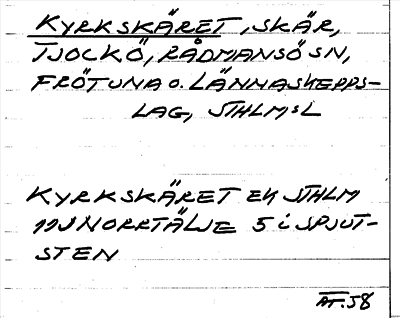 KYRKSKÄRET, SKÄR,
TJOCKÖ, RÅDMANSÖ SN,
FRÖTUNA o. LÄNNA SKEPPS-
LAG, STHLMSL
KYRKSKÄRET EK STHLM
11J NORRTÄLJE 5 i SPJUT-
STEN
AT. 58